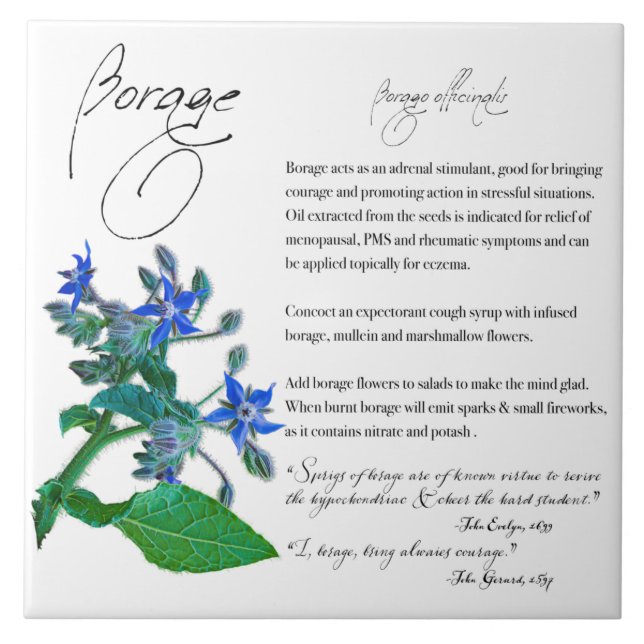 Borage
Borago officinalis
Borage acts as an adrenal stimulant, good for bringing
courage and promoting action in stressful situations.
Oil extracted from the seeds is indicated for relief of
menopausal, PMS and rheumatic symptoms and can
be applied topically for eczema.
Concoct an expectorant cough syrup with infused
borage, mullein and marshmallow flowers.
Add borage flowers to salads to make the mind glad.
When burnt borage will emit sparks & small fireworks,
as it contains nitrate and potash .
“Sprigs of borage are of known virtue to revive
the hypochondriac & cheer the hard student.”
-John Evelyn, 1699
“I, borage, bring alwaies courage.”
-John Gerard, 1597